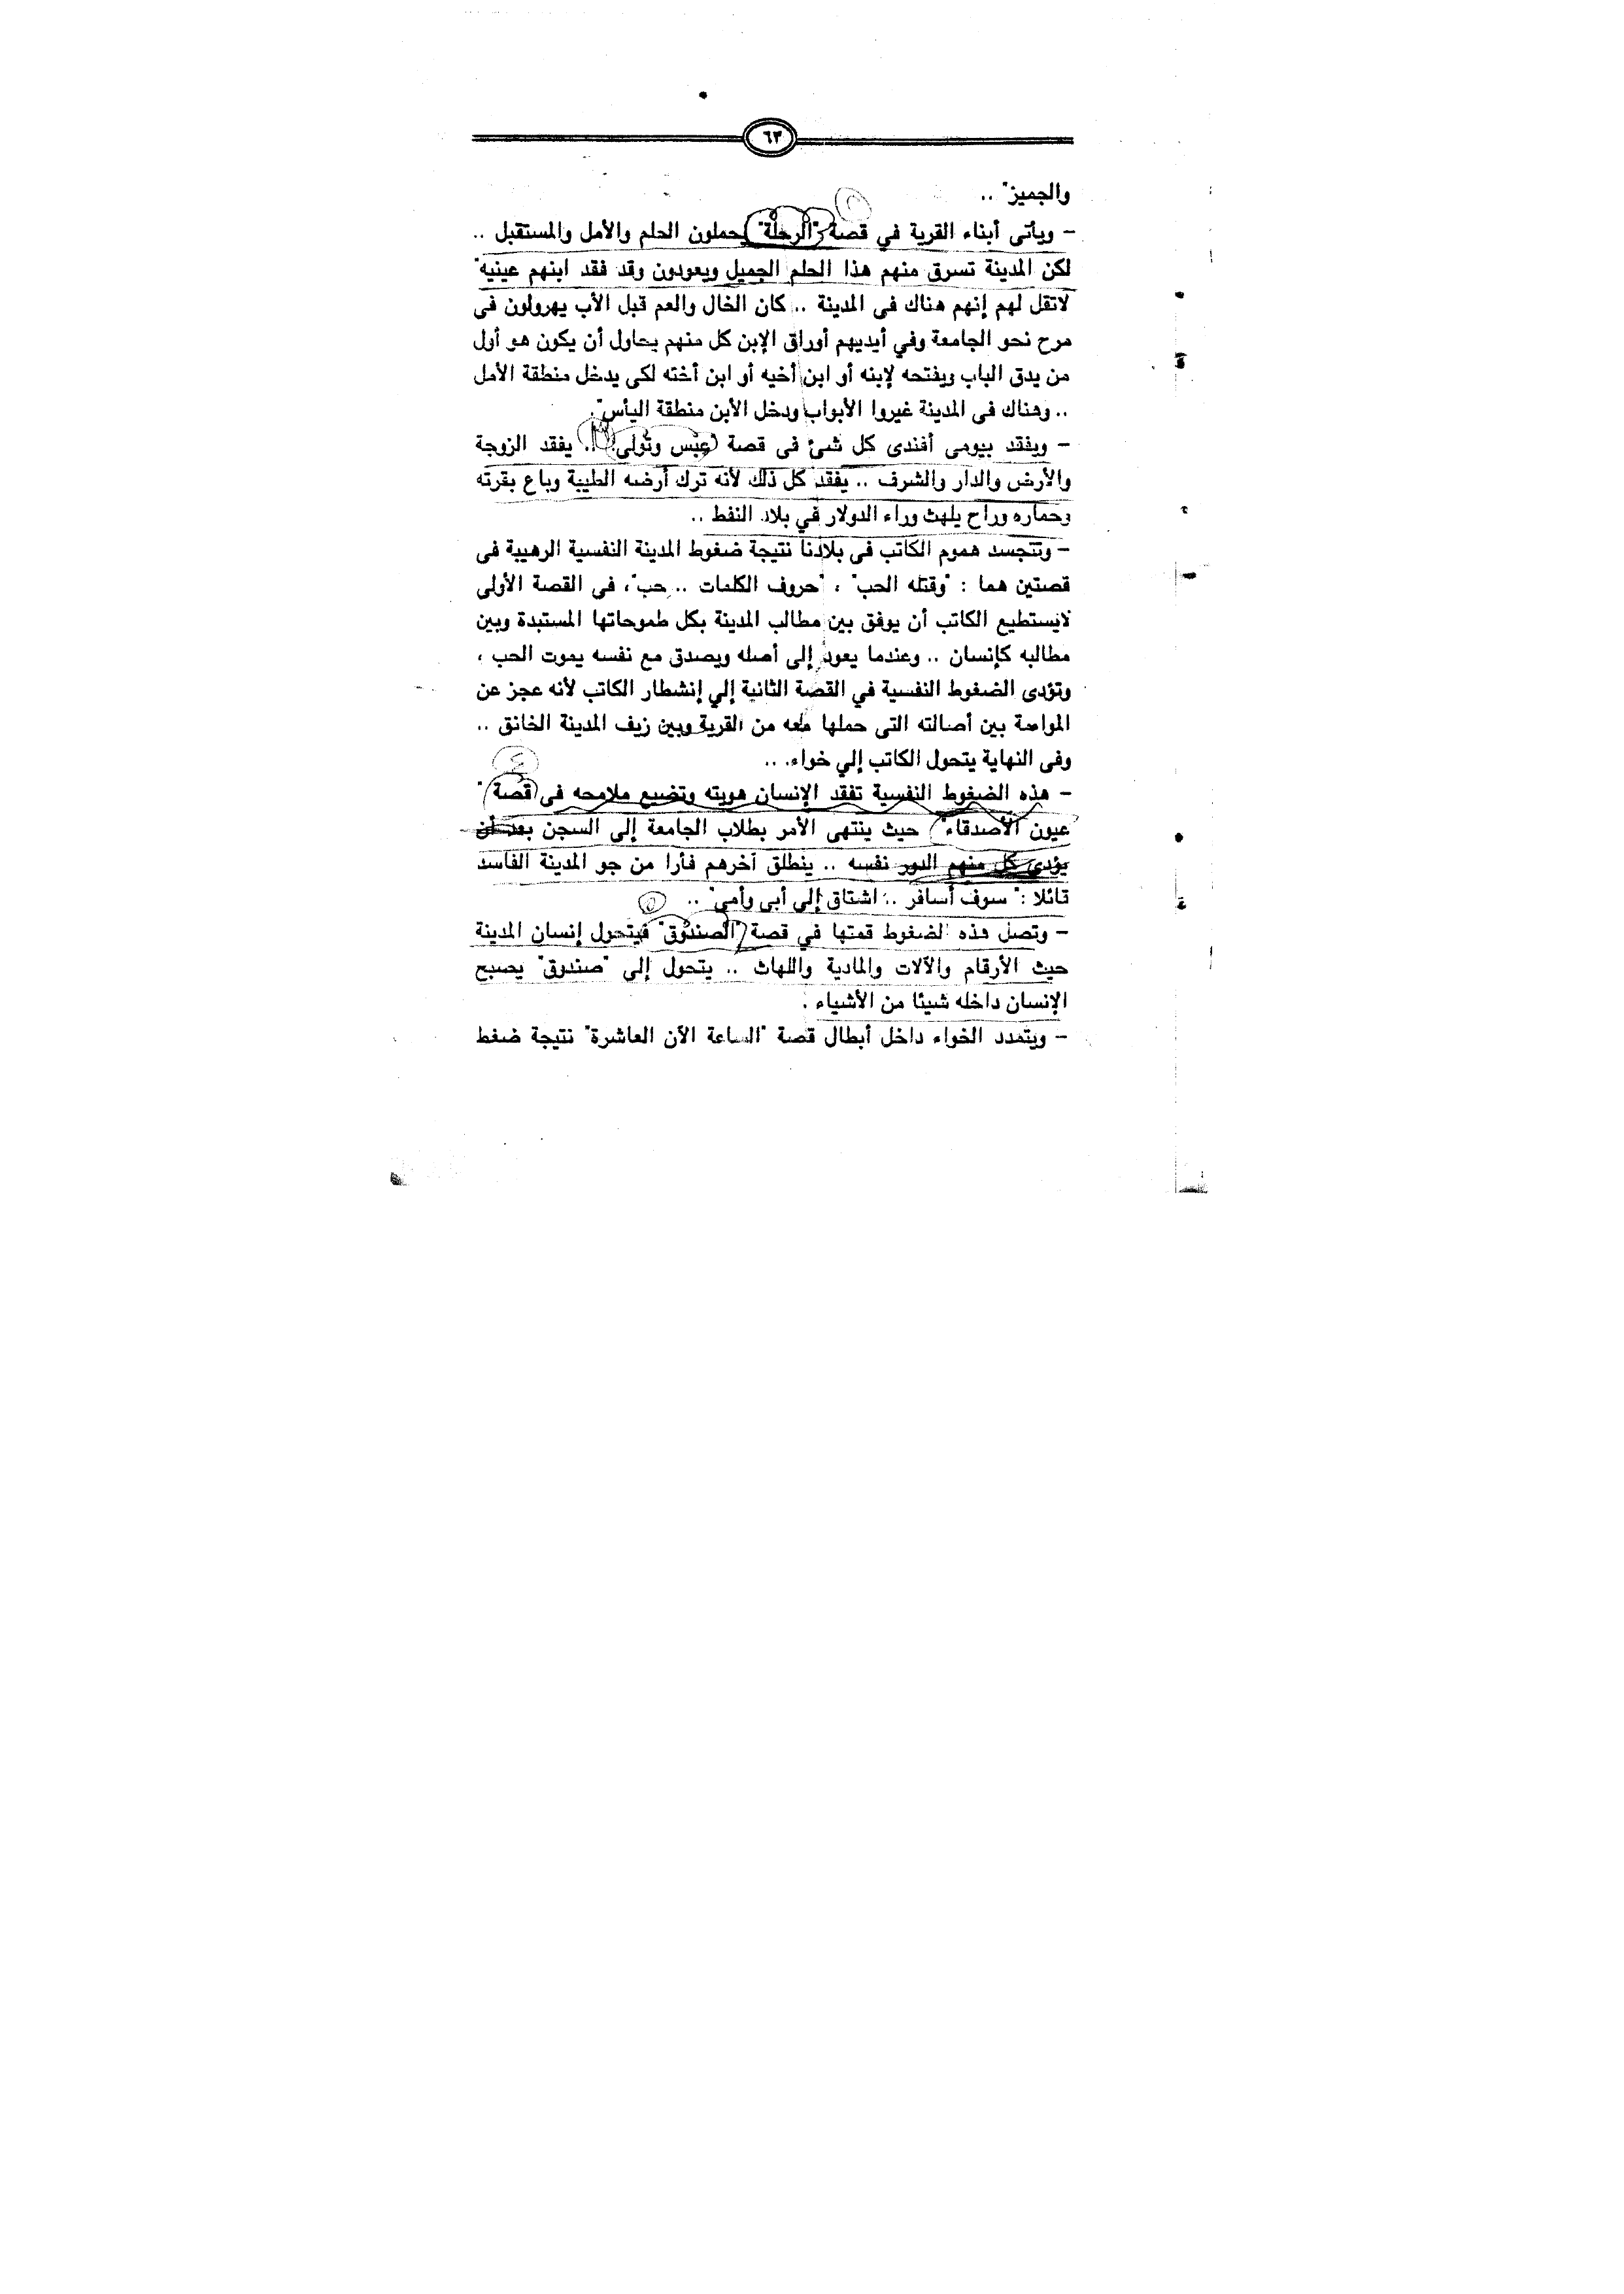 ٦٣
والجميز" ..
- ويأتى أبناء القرية في قصة "الرحلة" يحملون الحلم والأمل والمستقبل ..
لكن المدينة تسرق منهم هذا الحلم الجميل ويعودون وقد فقد ابنهم عينيه"
لاتقل لهم إنهم هناك فى المدينة .. كان الخال والعم قبل الأب يهرولون فى
مرح نحو الجامعة وفي أيديهم أوراق الإبن كل منهم يحاول أن يكون هو أول
من يدق الباب ويفتحه لإبنه أو ابن أخيه أو ابن أخته لكى يدخل منطقة الأمل
.. وهناك فى المدينة غيروا الأبواب ودخل الأبن منطقة اليأس".
- ويفقد بيومى أفندى كل شئ فى قصة (عبس وتولى) .. يفقد الزوجة
والأرض والدار والشرف .. يفقد كل ذلك لأنه ترك أرضه الطيبة وباع بقرته
وحماره وراح يلهث وراء الدولار في بلاد النفط ..
- وتتجسد هموم الكاتب فى بلادنا نتيجة ضغوط المدينة النفسية الرهيبة فى
قصتين هما : "وقتله الحب" ، "حروف الكلمات .. حب"، فى القصة الأولى
لايستطيع الكاتب أن يوفق بين مطالب المدينة بكل طموحاتها المستبدة وبين
مطالبه كإنسان .. وعندما يعود إلى أصله ويصدق مع نفسه يموت الحب ،
وتؤدى الضغوط النفسية في القصة الثانية إلي إنشطار الكاتب لأنه عجز عن
المواءمة بين أصالته التى حملها معه من القرية وبين زيف المدينة الخانق ..
وفى النهاية يتحول الكاتب إلي خواء. ..
- هذه الضغوط النفسية تفقد الإنسان هويته وتضيع ملامحه فى قصة "
عيون الأصدقاء" حيث ينتهى الأمر بطلاب الجامعة إلى السجن بعد أن
يؤدى كل منهم الدور نفسه .. ينطلق آخرهم فأرا من جو المدينة الفاسد
قائلا : "سوف أسافر .. اشتاق إلي أبى وأمي" ..
- وتصل هذه الضغوط قمتها في قصة "الصندوق" فيتحول إنسان المدينة
حيث الأرقام والآلات والمادية واللهاث .. يتحول إلى "صندوق" يصبح
الإنسان داخله شيئا من الأشياء .
- ويتمدد الخواء داخل أبطال قصة "الساعة الآن العاشرة" نتيجة ضغط